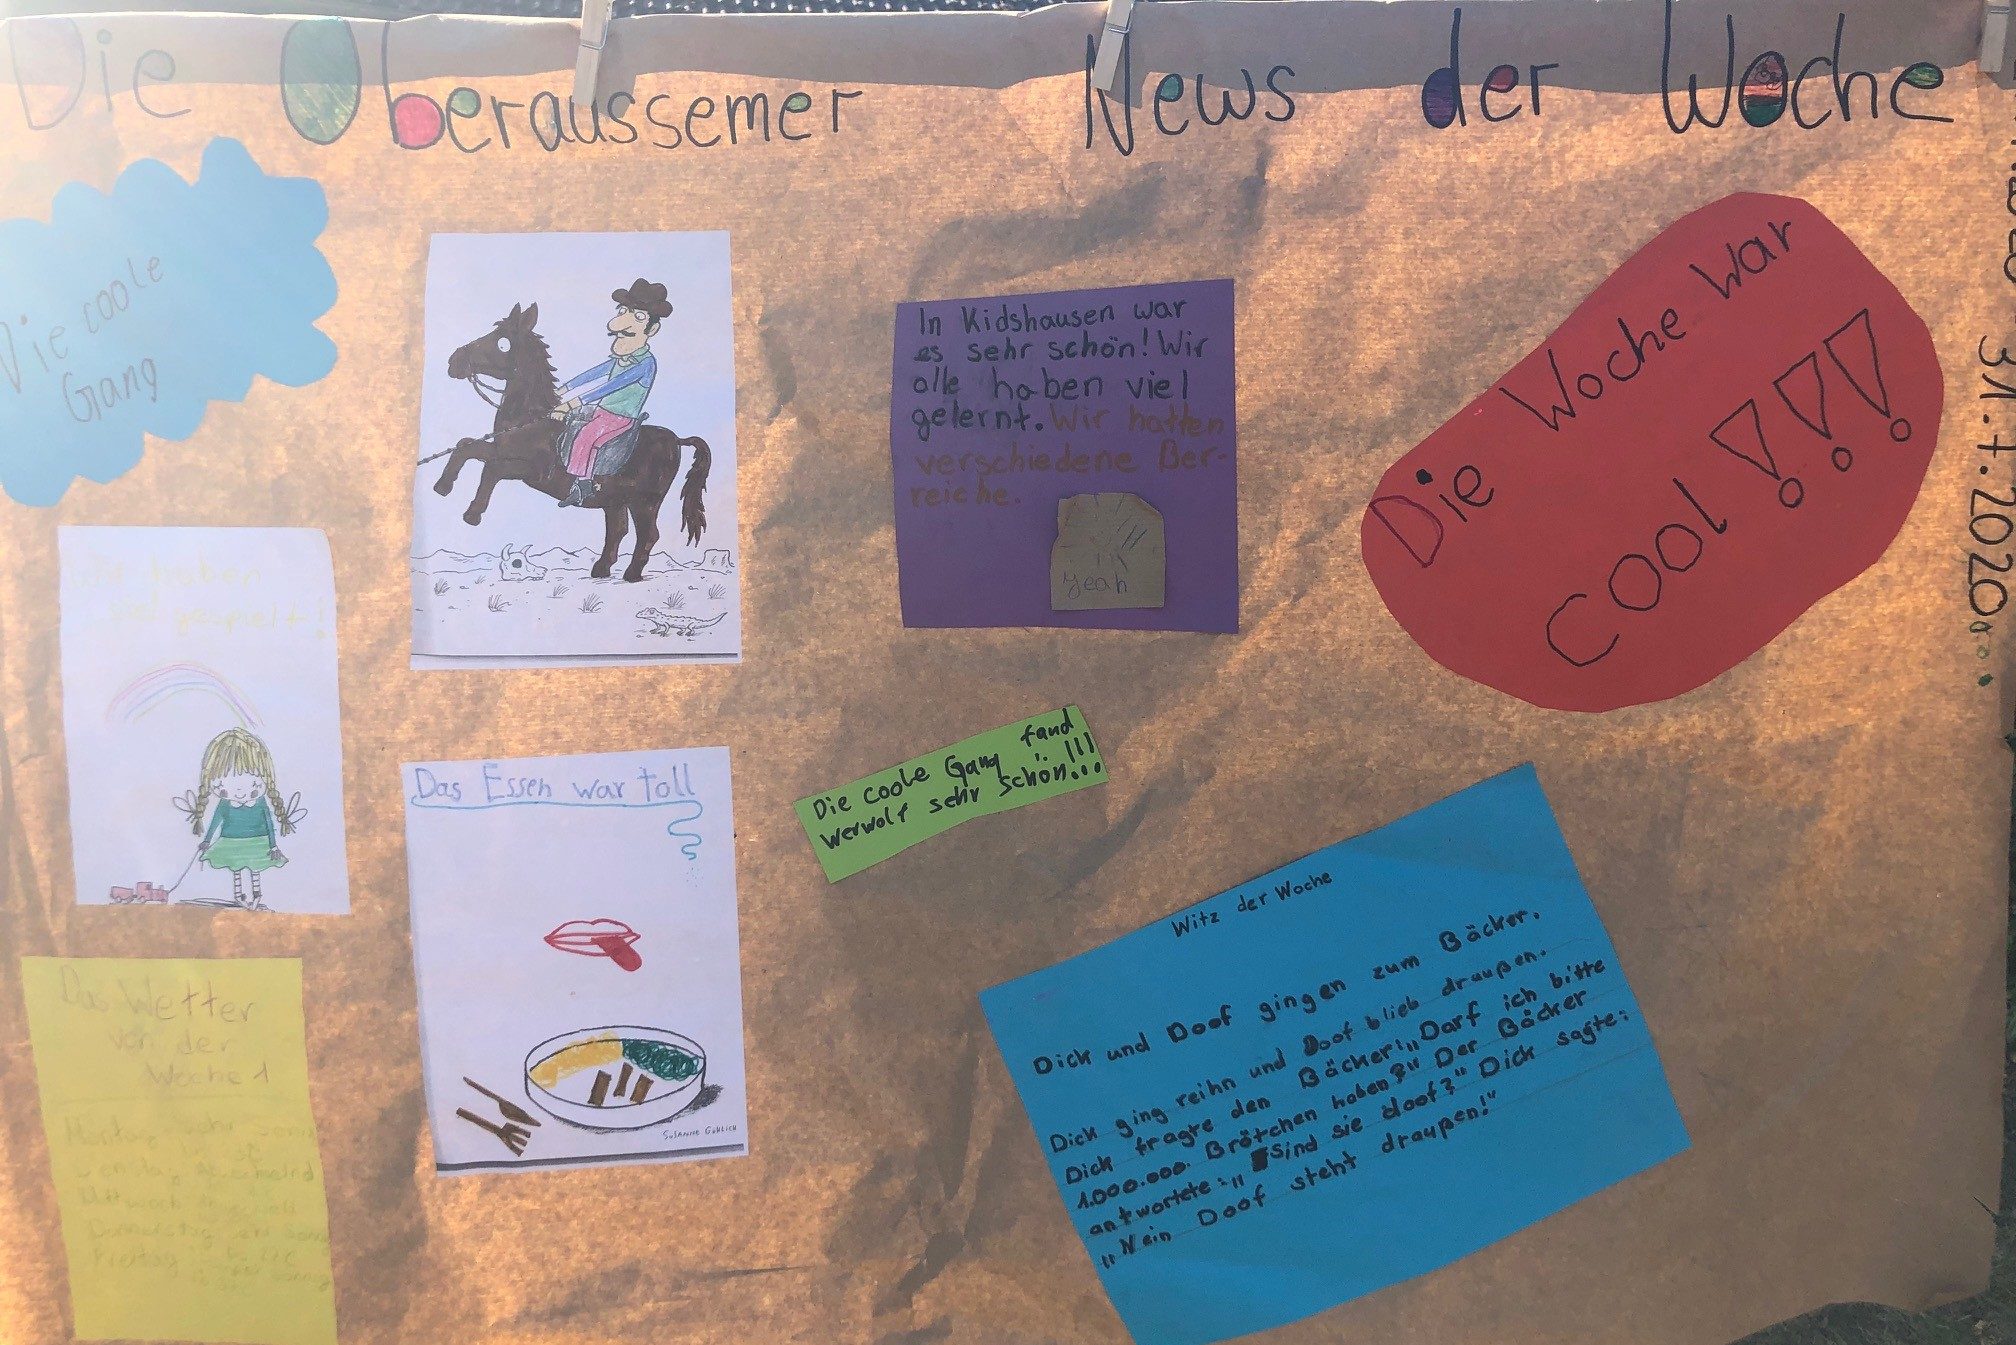 Die Oberaussemer News der Woche
Die coole
Gang
Wir haben
viel gespielt!
Das Wetter
von der
Woche 1
Montag sehr
Dienstag
Mittwoch
Donnerstag
Freitag
Das Essen war toll
Susanne Gohlich
In Kidshausen war
es sehr schön! Wir
alle haben viel
gelernt. Wir hatten
verschiedene Ber-
reiche.
yeah
Die coole Gang fand
Werwolf sehr schön...!!!
Die Woche war
cool!!!
Witz der Woche
Dick und Doof gingen zum Bäcker.
Dick ging reihn und Doof blieb draußen.
Dick fragte den Bäcker:„Darf ich bitte
1.000.000. Brötchen haben?" Der Bäcker
antwortete:„Sind sie doof?" Dick sagte:
„Nein Doof steht draußen!"
31.7.2020...